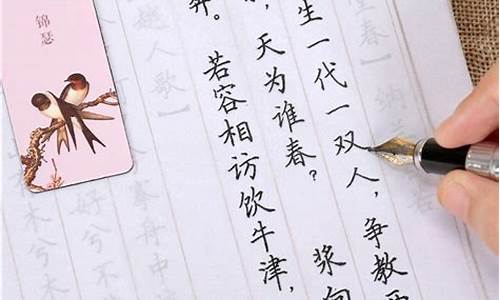 堂春】 纳
生一代一双人，争教
天为谁春？ 浆向
奔。 若容相访饮牛津，
越人歌】
搴舟中
好兮不
木兮木
锦瑟